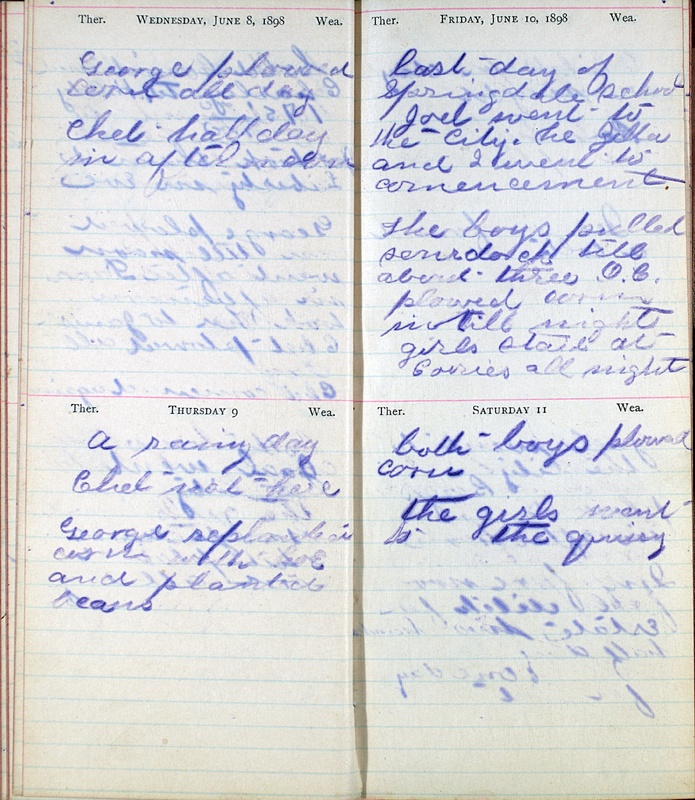 Ther. WEDNESDAY, JUNE 8, 1898 Wea.
George plowed
corn all day
Chet half day
in after noon
Ther. THURSDAY 9 Wea.
A rainy day
Chet not here
George replanted
corn with hoe
and planted
beans
Ther. FRIDAY, JUNE 10, 1898 Wea.
Last day of
Springdale School
Joel went to
the City. he Zella
and I went to
comencement.
The boys pulled
sourdock till
about three O.C.
plowed corn
till night
girls staid at
Corries all night
Ther. SATURDAY 11 Wea.
both boys plowed
corn
the girls went
to the quarry